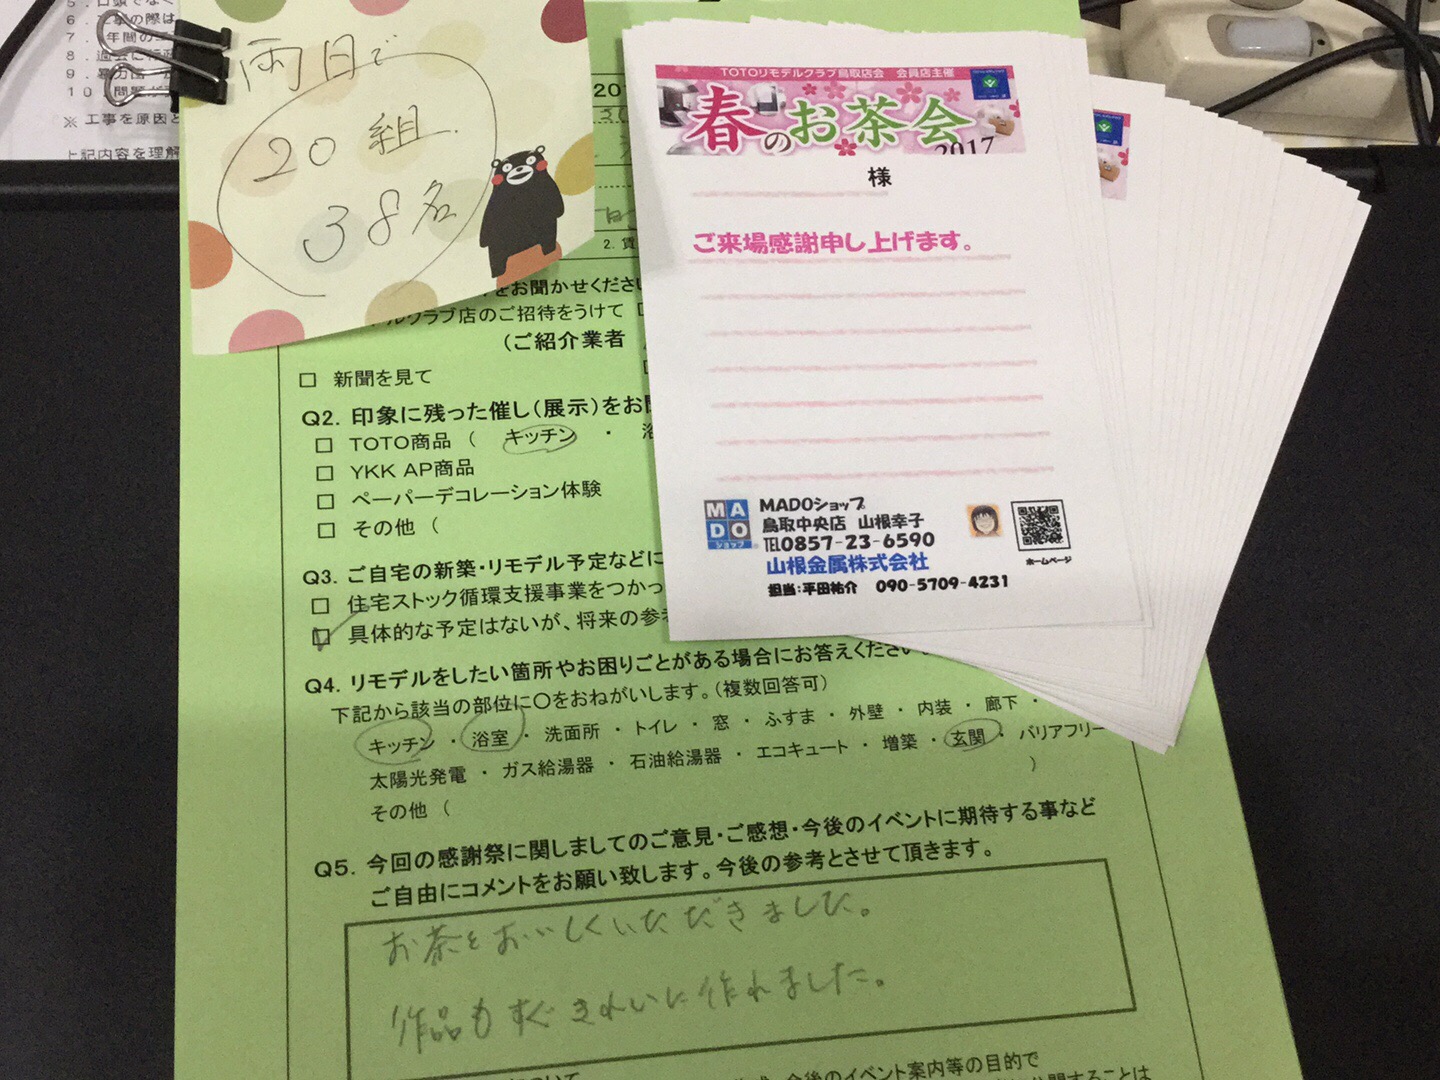 6．工事の際は
※ 工事を原因と
上記内容を理解
両日で
20組
38名
TOTOリモデルクラブ鳥取店会　会員店主催
春のお茶会
2017
様
ご来場感謝申し上げます。
MADO
ショップ
MADOショップ
鳥取中央店　山根幸子
TEL0857-23-6590
山根金属株式会社
担当：平田祐介　090-5709-4231
ホームページ
201
をお聞かせください
ルクラブ店のご招待をうけて
（ご紹介業者
□ 新聞を見て
Q2．印象に残った催し（展示）をお
□ TOTO商品（　キッチン　・　浴
□ YKK AP商品
□ ペーパーデコレーション体験
□ その他（
Q3．ご自宅の新築・リモデル予定などに
□ 住宅ストック循環支援事業をつかっ
☑ 具体的な予定はないが、将来の参考
Q4．リモデルをしたい箇所やお困りごとがある場合にお答えください
下記から該当の部位に〇をおねがいします。（複数回答可）
キッチン ・ 浴室 ・ 洗面所 ・ トイレ ・ 窓 ・ ふすま ・ 外壁 ・ 内装 ・ 廊下 ・
太陽光発電 ・ ガス給湯器 ・ 石油給湯器 ・ エコキュート ・ 増築 ・ 玄関 ・ バリアフリー
その他（　　）
Q5．今回の感謝祭に関しましてのご意見・ご感想・今後のイベントに期待する事など
ご自由にコメントをお願い致します。今後の参考とさせて頂きます。
お茶をおいしくいただきました。
作品もすぐきれいに作れました。
今後のイベント案内等の目的で
することは